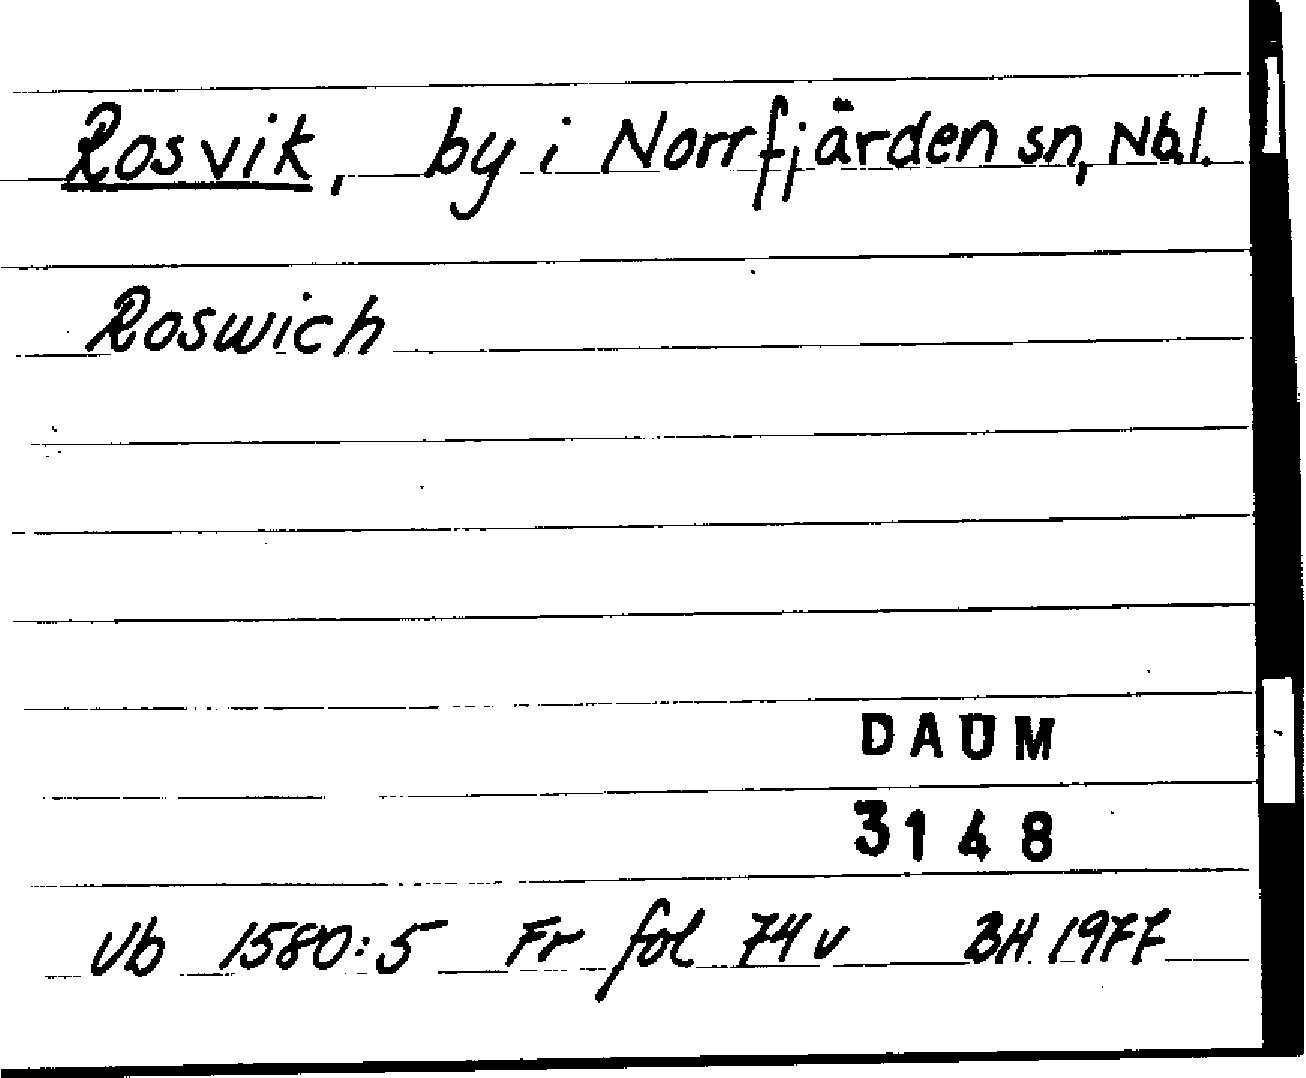 Rosvik, by i Norrfjärden sn, Nb.l.
Roswich
DAUM
3148
Vb 1580:5 Fr fol 74 v BH 1977